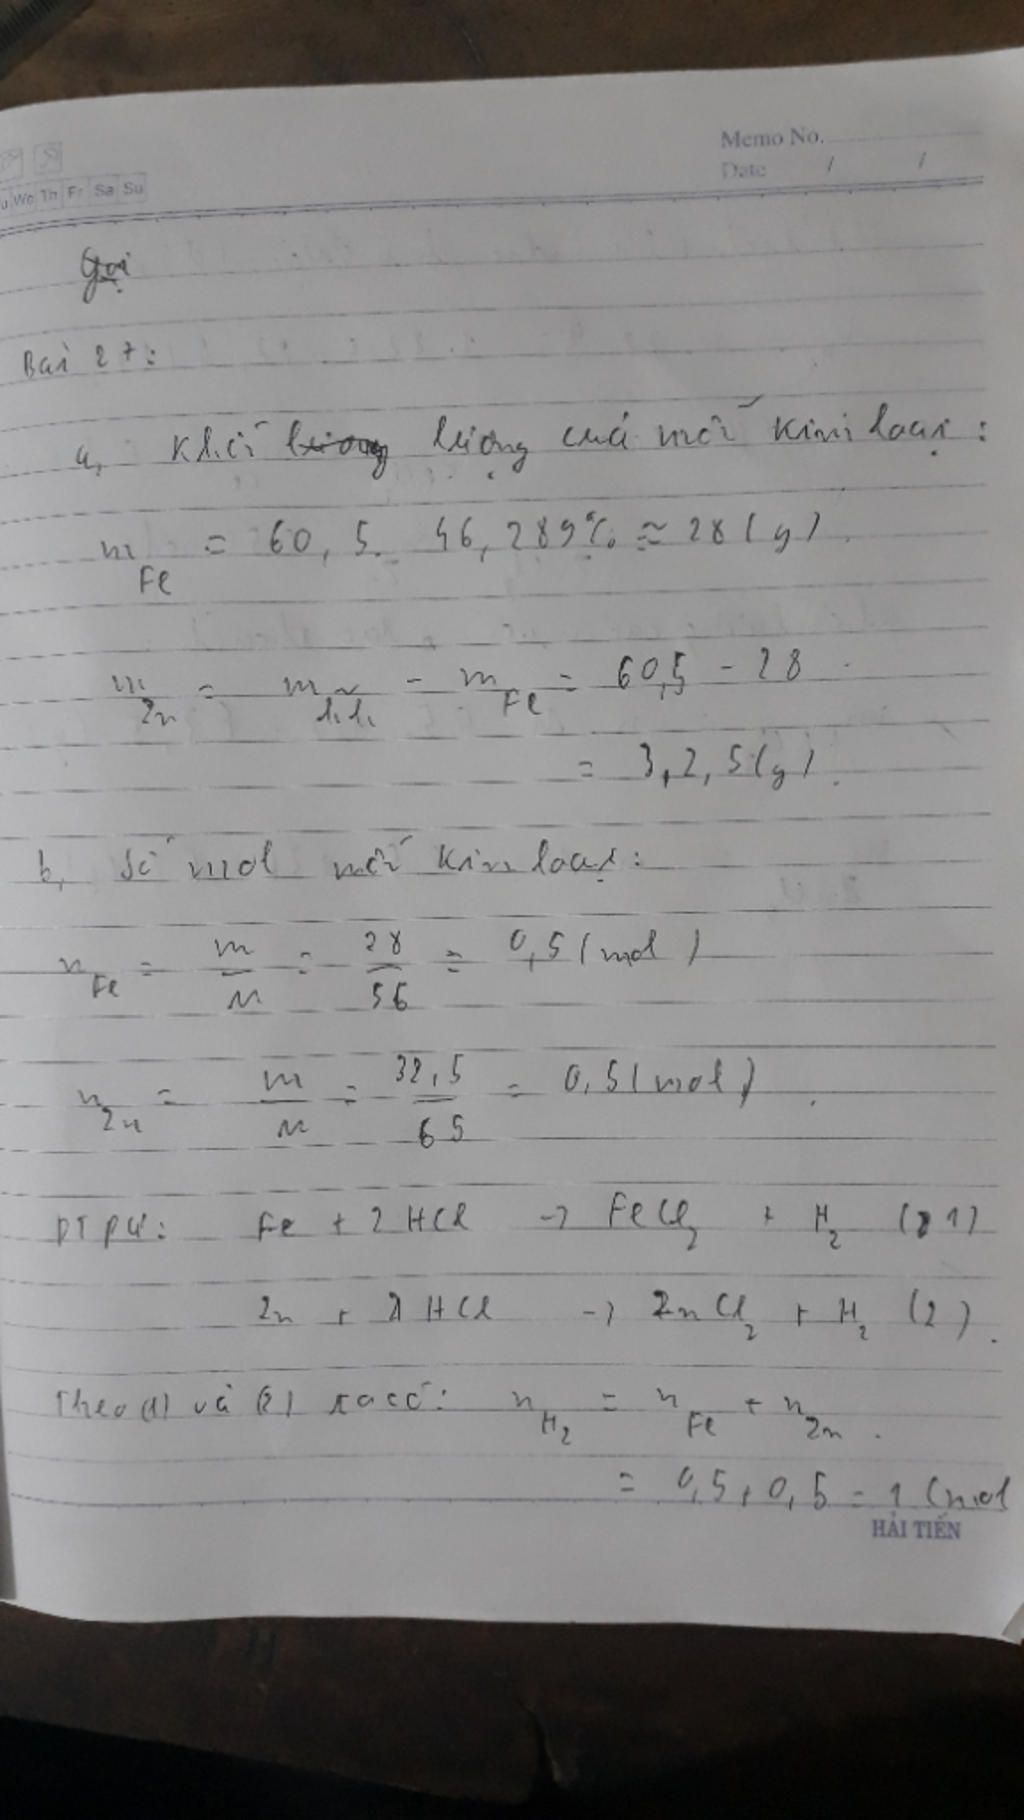 Memo No.
Date / /
u We Th Fr Sa Su
Gọi
Bài 27:
a, Khối lượng lượng của mỗi kim loại:
m Fe = 60,5. 46,289% ≈ 28 (g).
m Zn = m h.h. - m Fe = 60,5 - 28
= 3,2,5 (g).
b, Số mol mỗi kim loại:
n Fe = m/M = 28/56 = 0,5 (mol)
n Zn = m/M = 32,5/65 = 0,5 (mol).
PTPƯ: Fe + 2 HCl -> FeCl2 + H2 (1)
Zn + 2 HCl -> ZnCl2 + H2 (2).
Theo (1) và (2) ta có: n H2 = n Fe + n Zn.
= 0,5 + 0,5 = 1 (mol
HẢI TIẾN